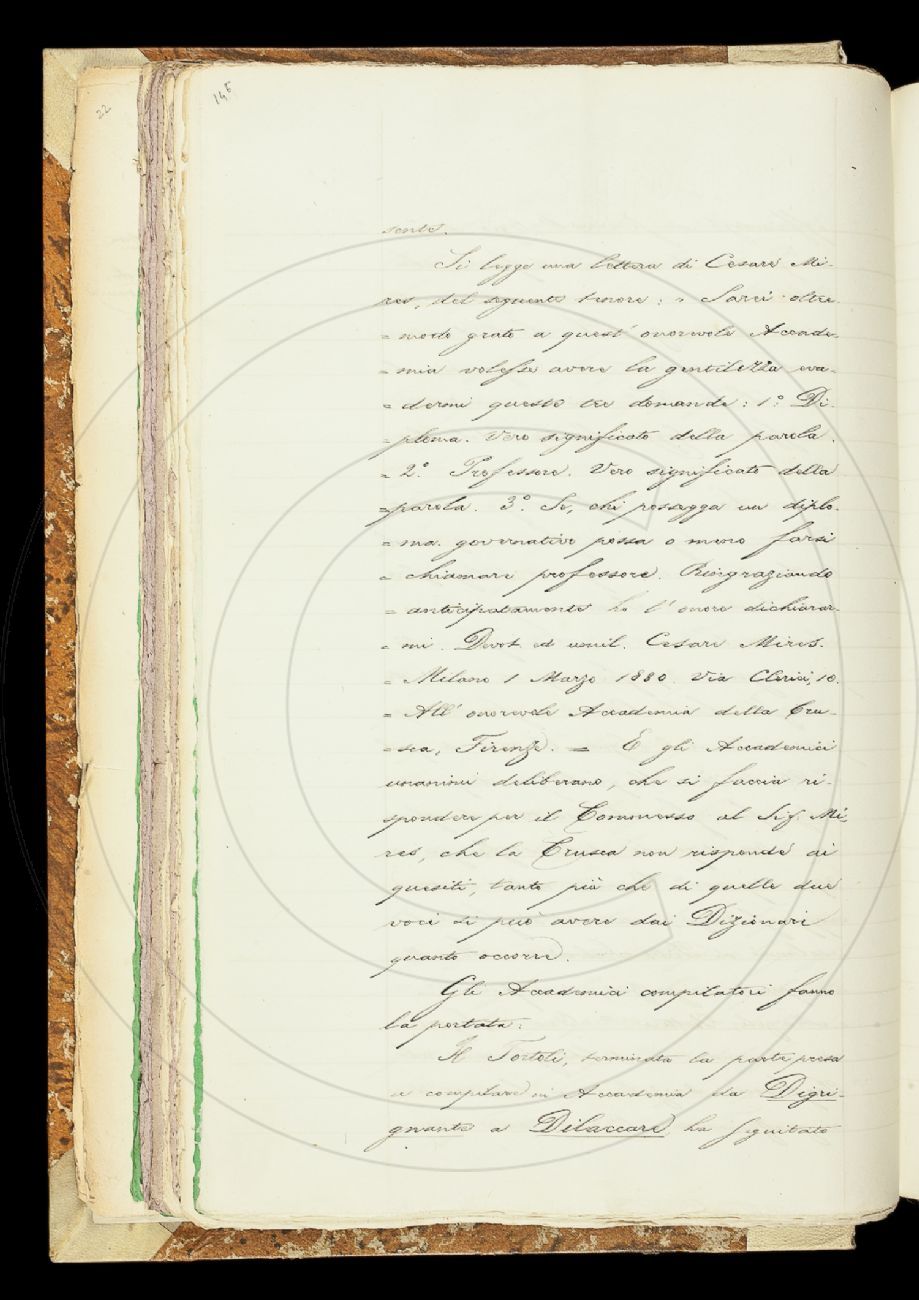 22
145
sente.
Si legge una lettera di Cesare Mi-
res, del seguente tenore: " Sarei oltre
= modo grato a quest' onorevole Accade-
= mia volesse avere la gentilezza eva-
= dermi queste tre domande: 1º Di-
= ploma. Vero significato della parola.
= 2º. Professore. Vero significato della
= parola. 3º. Se, chi possegga un diplo-
= ma governativo possa o meno farsi
= chiamare professore. Ringraziando
= anticipatamente ho l' onore dichiarar-
= mi. Devot. ed umil. Cesare Mires.
= Milano 1 Marzo 1880. Via Clerici, 10.
= All' onorevole Accademia della Cru-
= sca, Firenze. = E gli Accademici
unanimi deliberano, che si faccia ri-
spondere per il Commesso al Sig. Mi-
res, che la Crusca non risponde ai
quesiti, tanto più che di quelle due
voci si può avere dai Dizionari
quanto occorre.
Gli Accademici compilatori fanno
la portata:
Il Tortoli, terminata la parte presa
a compilare in Accademia da Digri-
gnante a Dilaccare, ha seguitato